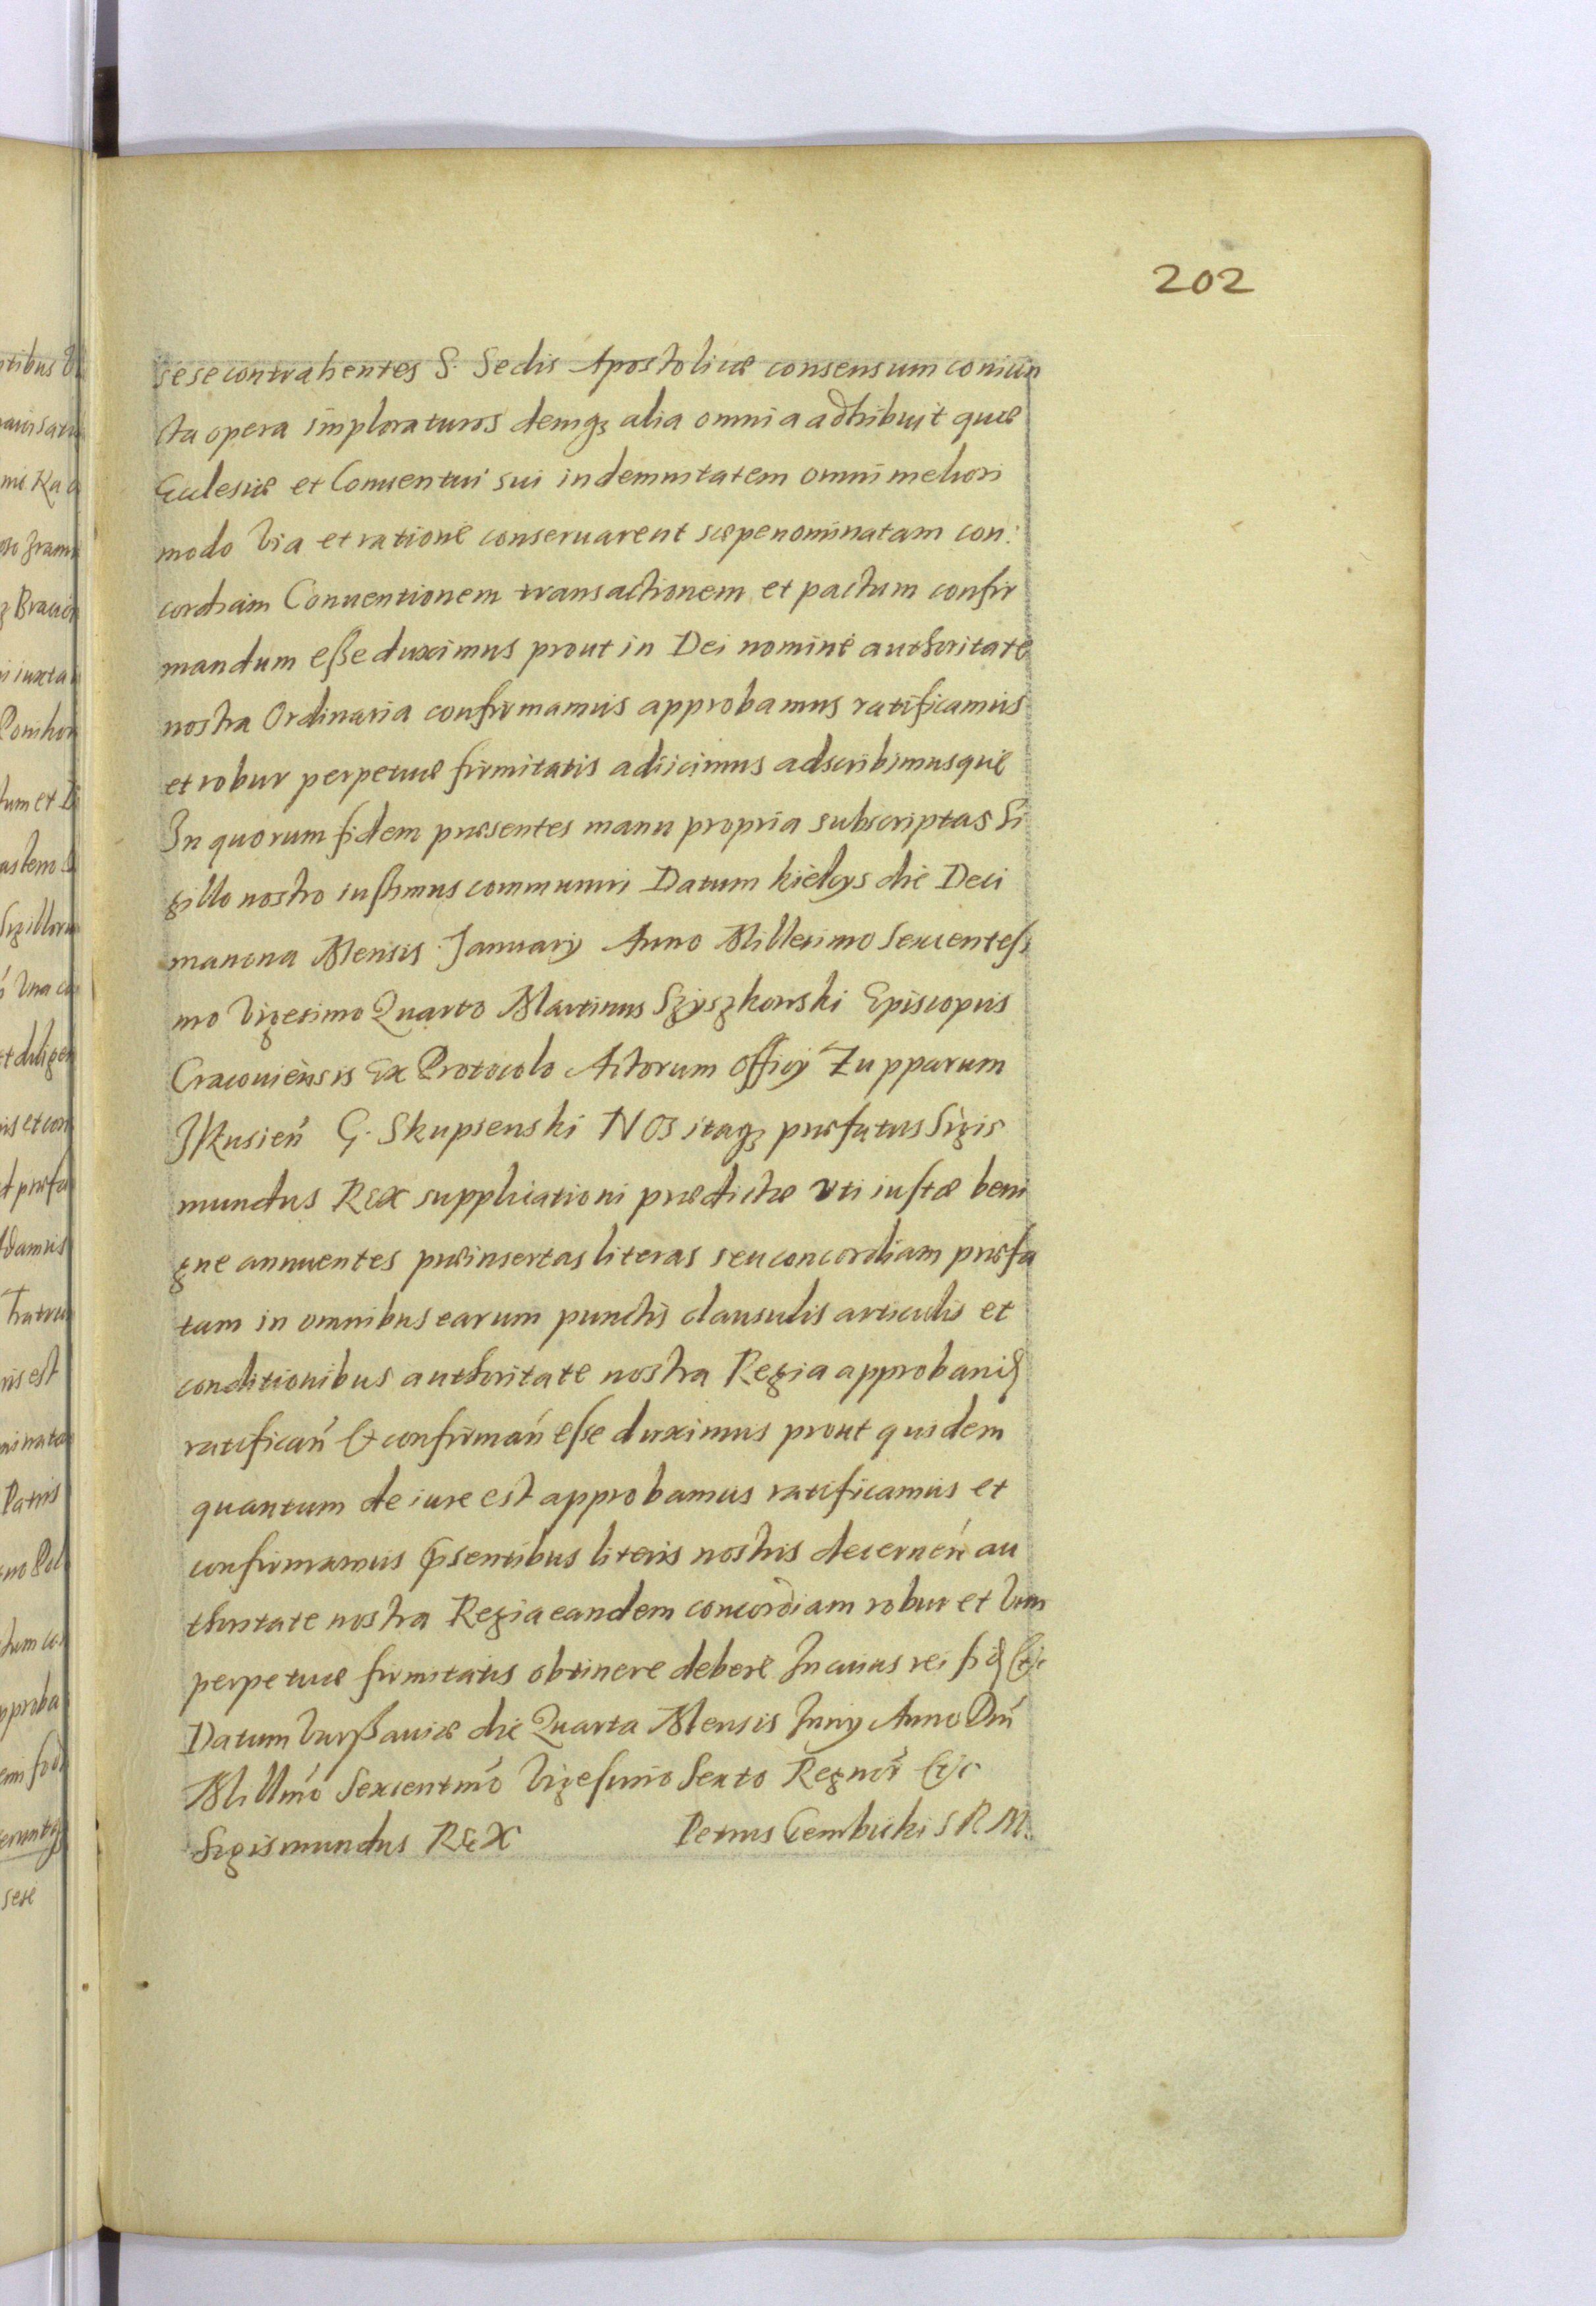 202
sese contrahentes S. Sedis Apostolicæ consensum coniun
cta opera imploraturos deniqꝫ alia omnia adhibuit quæ
Ecclesiæ et Conuentui sui indemnitatem omni meliori
modo via et ratione conseruarent sæpenominatam con:
cordiam Conuentionem transactionem et pactum confir
mandum eße duximus prout in Dei nomine authoritate
nostra Ordinaria confirmamus approbamus ratificamus
et robur perpetuæ firmitatis adiicimus adscribimusque
In quorum fidem præsentes manu propria subscriptas Si
gillo nostro iussimus communiri Datum kielcys die Deci
manona Mensis January Anno Millesimo Sexcentesi
mo Vigesimo Quarto Martinus Szyszkowski Episcopus
Cracouiensis Ex Protocolo Actorum Officÿ Zupparum
Ilkusień G. Skupienski NOS itaqꝫ præfatus Sigis
mundus REX supplicationi prædictæ vti iustæ beni
gne annuentes præinsertas literas seu concordiam præfa
tam in omnibus earum punctis clausulis articulis et
conditionibus authoritate nostra Regia approband
ratificań & confirmań esse duximus prout quidem
quantum de iure est approbamus ratificamus et
confirmamus p̃sentibus literis nostris decerneń au
thoritate nostra Regia eandem concordiam robur et vim
perpetuæ firmitatis obtinere debere In cuius rei fid &c
Datum Varßauiæ die Quarta Mensis Juny Anno Dńi
Millmo Sexcentmo Vigesimo Sexto Regnor &c
Sigismundus REX Petrus Gembicki S R M.